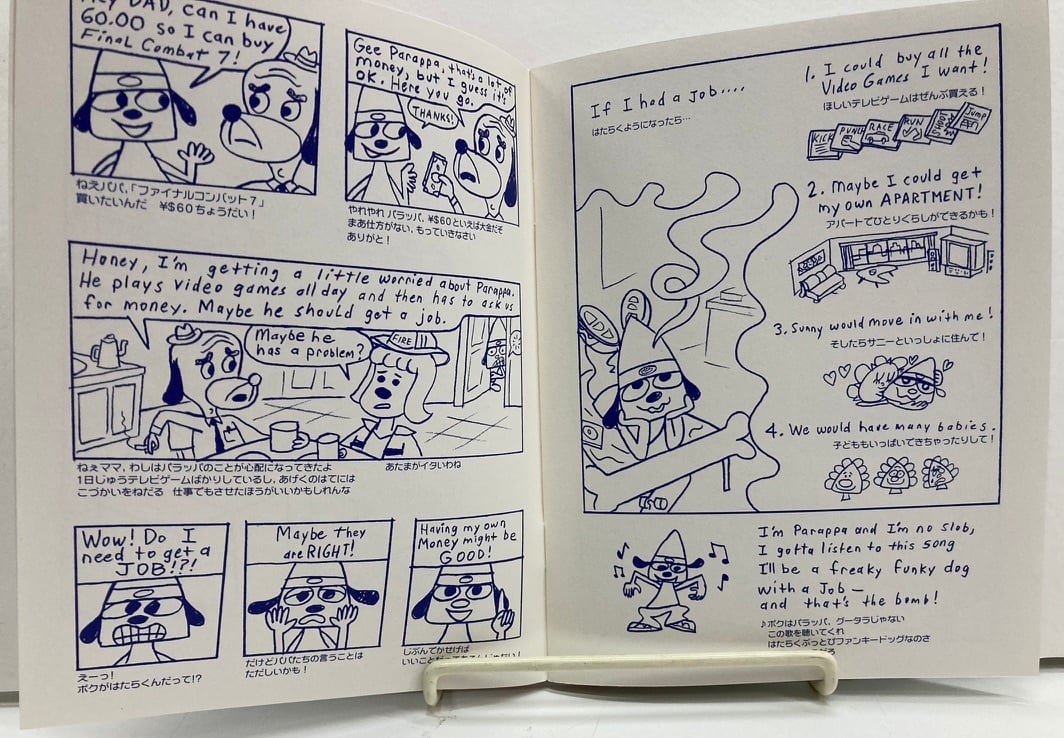 Hey DAD, can I have
60.00 so I can buy
Final Combat 7!
ねえパパ、「ファイナルコンバット7」
買いたいんだ ¥$60ちょうだい!
Gee Parappa, that's a lot of
money, but I guess it's
OK. Here you go.
THANKS!
やれやれ パラッパ、¥$60といえば大金だぞ
まあ仕方がない、もっていきなさい
ありがと!
Honey, I'm getting a little worried about Parappa.
He plays video games all day and then has to ask us
for money. Maybe he should get a job.
Maybe he
has a problem?
FIRE
ねぇママ、わしはパラッパのことが心配になってきたよ
1日じゅうテレビゲームばかりしているし、あげくのはてには
こづかいをねだる 仕事でもさせたほうがいいかもしれんな
あたまがイタいわね
Wow! Do I
need to get a
JOB!?!
えーっ!
ボクがはたらくんだって!?
Maybe they
are RIGHT!
だけどパパたちの言うことは
ただしいかも!
Having my own
Money might be
GOOD!
じぶんでかせげば
If I had a job....
はたらくようになったら…
1. I could buy all the
Video Games I want!
ほしいテレビゲームはぜんぶ買える!
KICK
PUNCH
RACE
RUN
Jump
2. Maybe I could get
my own APARTMENT!
アパートでひとりぐらしができるかも!
3. Sunny would move in with me!
そしたらサニーといっしょに住んで!
4. We would have many babies.
子どももいっぱいできちゃったりして!
I'm Parappa and I'm no slob,
I gotta listen to this song
I'll be a freaky funky dog
with a Job —
and that's the bomb!
♪ボクはパラッパ、グータラじゃない
この歌を聴いてくれ
はたらくぶっとびファンキードッグなのさ